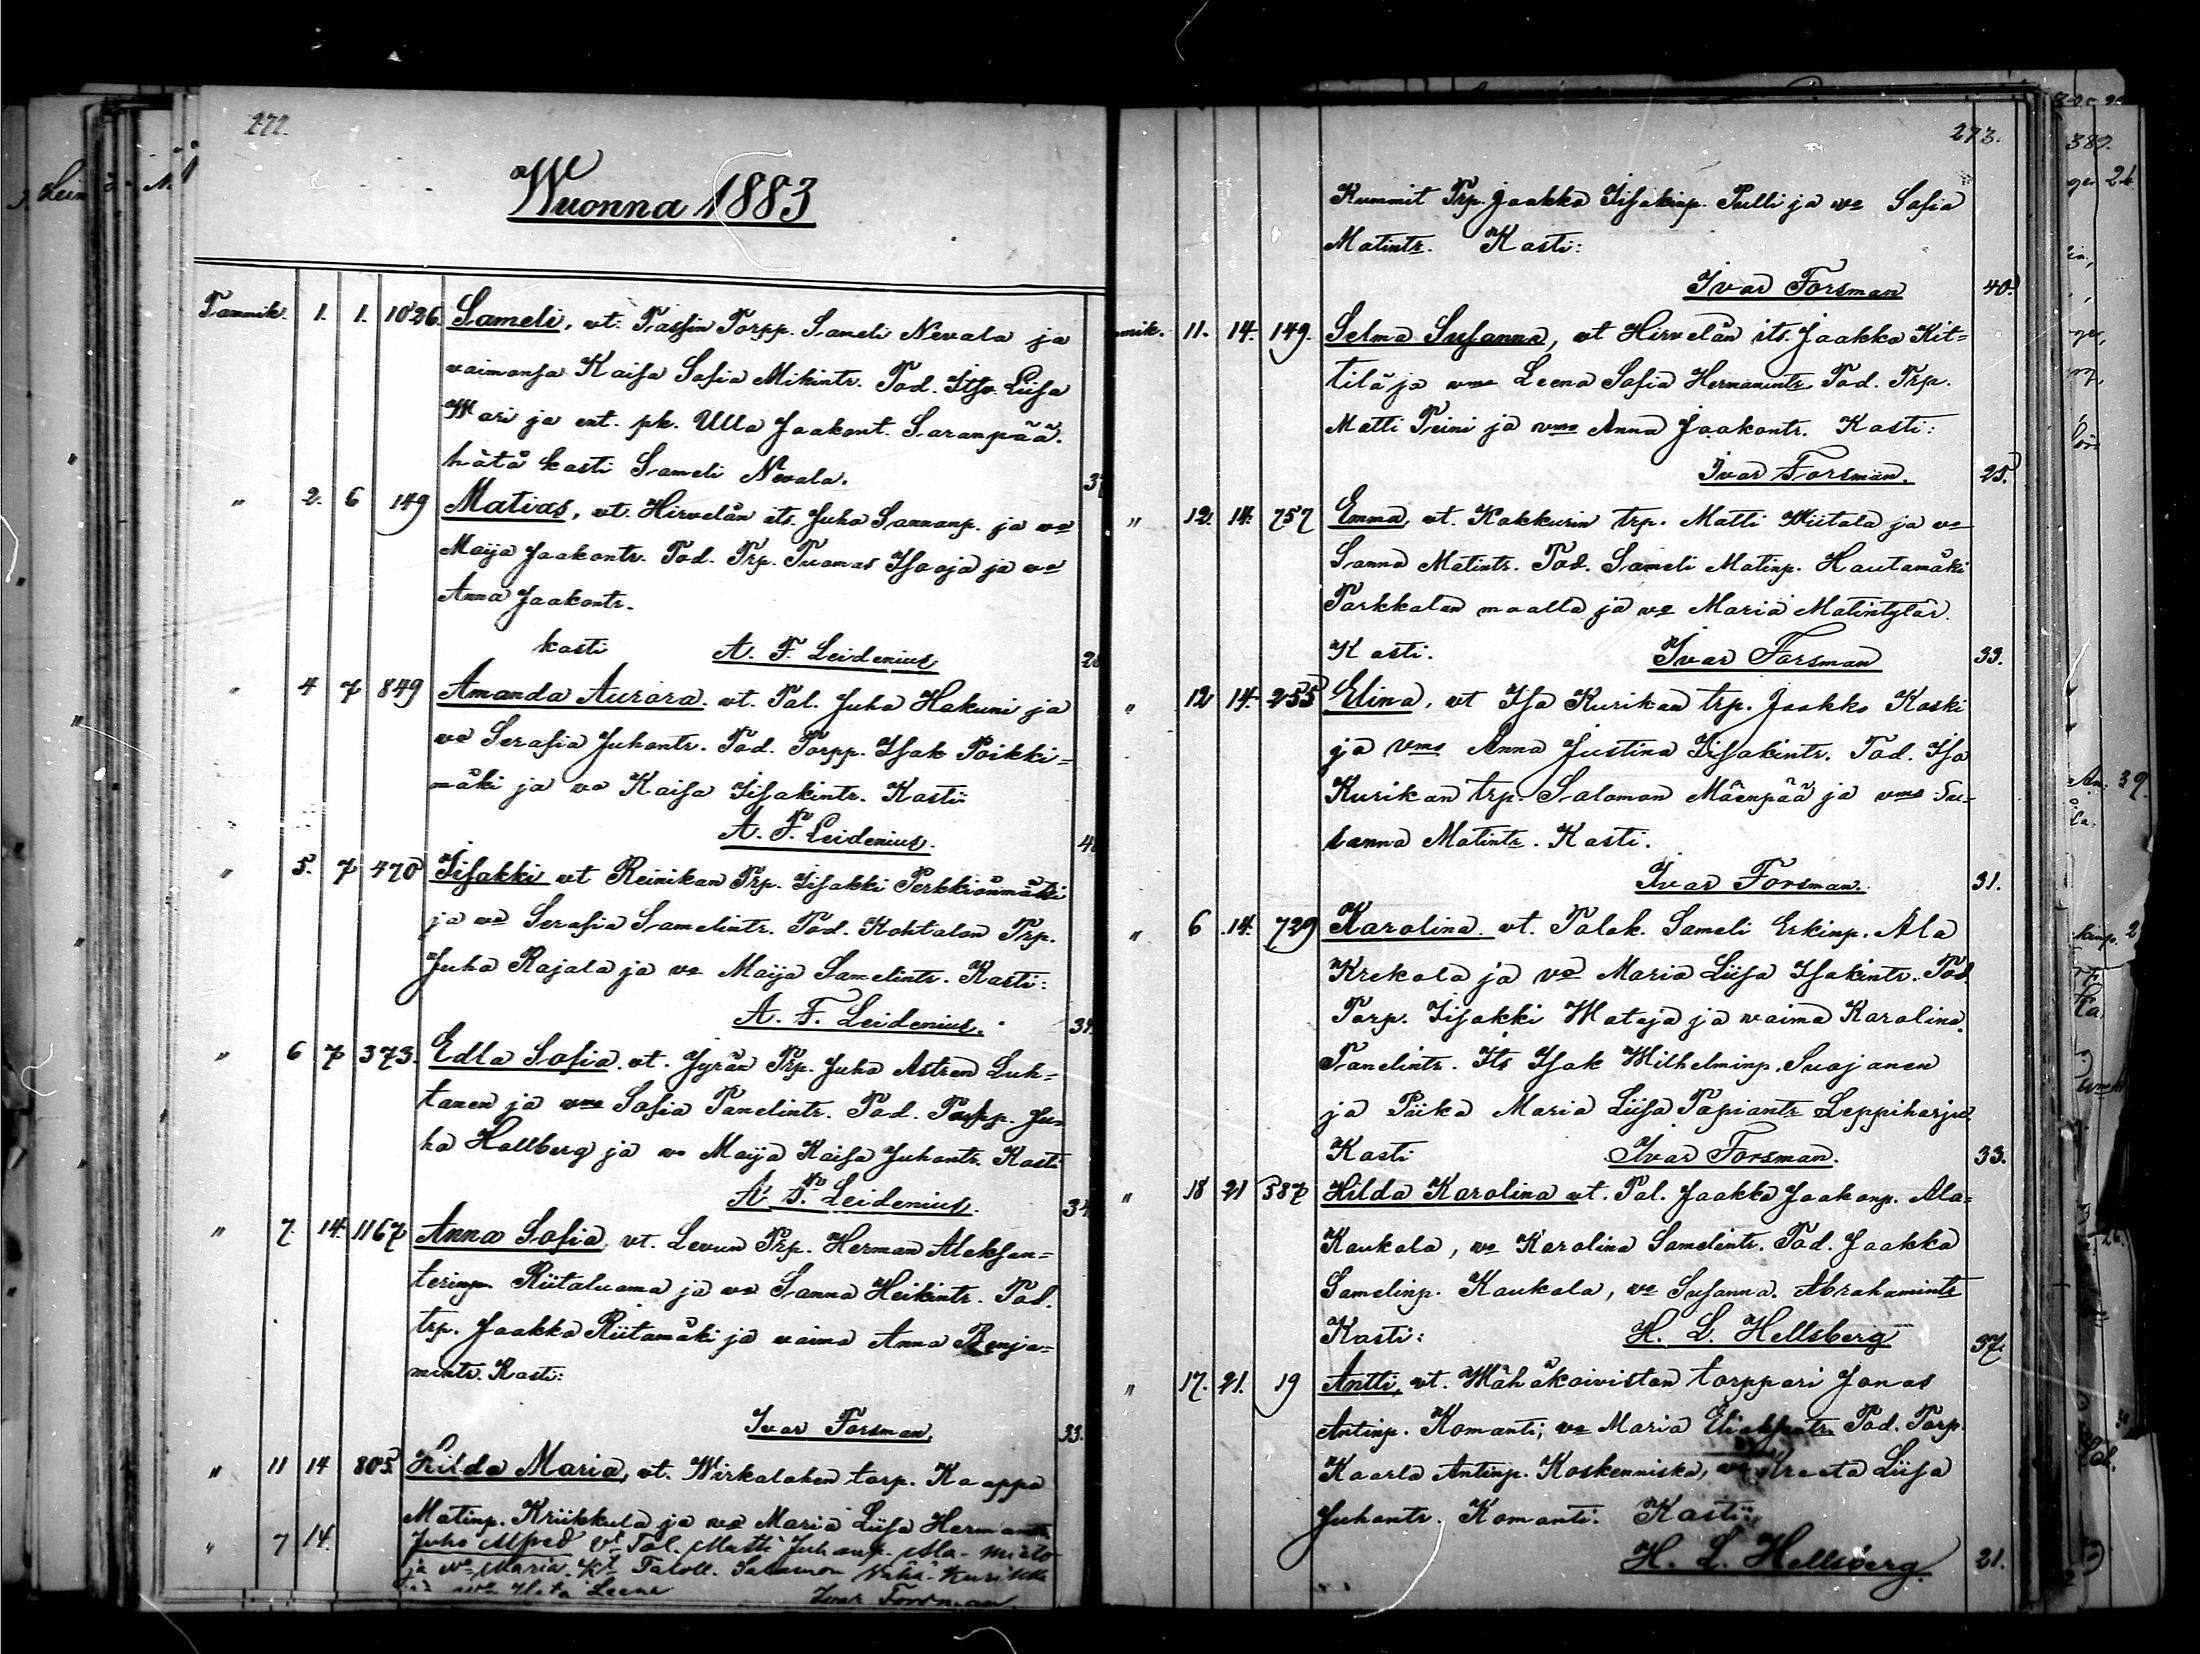 272.
Wuonna 1883
Tammik. 1. 1. 1026. Sameli, vt. Passin Torpp. Sameli Nevala ja
vaimonsa Kaisa Sofia Mikintr. Tod. Itsv. Liisa
Wari ja ent. pk. Ulla Jaakont. Saranpää.
hätä kasti Sameli Nevala.
" 2. 6 149 Matias, vt. Hirvelän its. Juho Sannanp. ja vo
Maija Jaakontr. Tod. Trp. Tuomas Isooja ja vo
Anna Jaakontr.
kasti A. F. Leidenius
" 4 7 849 Amanda Aurora. vt. Tal. Juho Hakuni ja
vo Serafia Juhontr. Tod. Torpp. Isak Poikki=
mäki ja vo Kaisa Iisakintr. Kasti
A. F. Leidenius.
" 5. 7 470 Iisakki vt Reinikan Trp. Iisakki Perkkiönmäki
ja vo Serafia Samelintr. Tod. Kohtalon Trp.
Juha Rajala ja vo Maija Samelintr. Kasti:
A. F. Leidenius.
" 6 7 373. Edla Sofia. vt. Jyrän Trp. Juho Astren Luh=
tanen ja vmo Sofia Tanelintr. Tod. Torpp. Ju=
ha Hallberg ja vo Maija Kaisa Juhontr. Kasti
A. F. Leidenius.
" 7. 14. 1167 Anna Sofia, vt. Levun Trp. Herman Aleksan=
terinp. Riitaluoma ja vo Sanna Heikintr. Tod.
trp. Jaakko Riitamäki ja vaimo Anna Benja=
mintr. Kasti:
Ivar Forsman. 33.
" 11 14 805. Hilda Maria, vt. Wirkalaken torp. Kaappo
Matinp. Kriikkula ja vo Maria Liisa Hermantr.
" 7 14. Juho Alfred vt Tal. Matti Juhanp. Ala-Mieto
ja vo Maria. Kt Taloll. Salamon Vähä-Kurikka
Leena Ivar Forsman
273.
Kummit Trp. Jaakko Iisakinp. Pulli ja vo Sofia
Matintr. Kasti:
Ivar Forsman 40.
11. 14. 149. Selma Susanna, vt Hirvelän its. Jaakko Kit=
tilä ja vmo Leena Sofia Hermanintr. Tod. Trp.
Matti Peini ja vmo Anna Jaakontr. Kasti:
Ivar Forsman. 25.
" 12. 14. 757 Emma, vt. Kakkurin trp. Matti Wiitala ja vo
Sanna Matintr. Tod. Sameli Matinp. Hautamäki
Parkkalan maalla ja vo Maria Matintytär.
Kasti. Ivar Forsman 33.
" 12 14. 255 Elina, vt Iso Kurikan trp. Jaakko Koski
ja vmo Anna Justina Iisakintr. Tod. Iso
Kurikan trp. Salomon Mäenpää ja vmo Su=
sanna Matintr. Kasti.
Ivar Forsman. 31.
" 6 14. 729 Karolina. vt. Talok. Sameli Erkinp. Ala
Krekola ja vo Maria Liisa Isakintr. Tod.
Torp. Iisakki Mataja ja vaimo Karolina
Tanelintr. Its Isak Wilhelminp. Suojanen
ja Piika Maria Liisa Tapiantr Leppiharju.
Kasti Ivar Forsman. 33.
" 18 21 587 Hilda Karolina vt. Tal. Jaakko Jaakonp. Ala=
Kaukola, vo Karolina Samelintr. Tod. Jaakko
Samelinp. Kaukola, vo Susanna Abrahamintr
Kasti: H. L. Hellsberg 37.
" 17. 21. 19 Antti, vt. Wähäkoiviston torppari Jonas
Antinp. Komanti, vo Maria Tod. Torp.
Kaarlo Antinp. Koskenniska, vo Kreeta Liisa
Juhontr. Komanti. Kasti:
H. L. Hellsberg. 21.